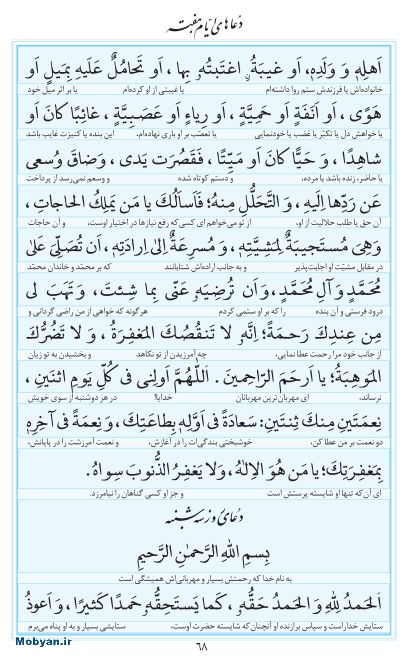 دعاهای ایام هفته
اَهلِهِ وَ وَلَدِهِ، اَو غیبَةٌ اغتَبتُهُ بِها، اَو تَحامُلٌ عَلَیهِ بِمَیلٍ اَو
خانواده‌اش یا فرزندش ستم روا داشته‌ام یا غیبتی از او کرده‌ام یا بر اثر میل خود
هَوًی، اَو اَنَفَةٍ اَو حَمِیَّةٍ، اَو رِیاءٍ اَو عَصَبِیَّةٍ، غائِبًا کانَ اَو
یا خواهش دل یا تکبّر یا غضب یا خودنمایی یا تعصّب بر او باری نهاده‌ام، این بنده یا کنیزت غایب باشد
شاهِدًا، وَ حَیًّا کانَ اَو مَیِّتًا، فَقَصُرَت یَدی، وَضاقَ وُسعی
یا حاضر، زنده باشد یا مرده، و دستم کوتاه شده و وسعم نمی‌رسد از پرداخت
عَن رَدِّها اِلَیهِ، وَ التَّحَلُّلِ مِنهُ؛ فَاَسأَلُکَ یا مَن یَملِکُ الحاجاتِ،
آن حق یا طلب حلالیت از او، از تو می‌خواهم ای کسی‌که رفع نیازها در اختیار اوست، و آن حاجات
وَهِیَ مُستَجیبَةٌ لِمَشِیَّتِهِ، وَ مُسرِعَةٌ اِلیٰ اِرادَتِهِ، اَن تُصَلِّیَ عَلیٰ
در مقابل مشیّت او اجابت‌پذیر و به جانب اراده‌اش شتابانند که بر محمّد و خاندان محمّد
مُحَمَّدٍ وَ آلِ مُحَمَّدٍ، وَ اَن تُرضِیَهُ عَنّی بِما شِئتَ، وَ تَهَبَ لی
درود فرستی و آن بنده را که بر او ستمی کردم هرگونه که خواهی از من راضی گردانی و
مِن عِندِکَ رَحمَةً؛ اِنَّهُ لا تَنقُصُکَ المَغفِرَةُ، وَ لا تَضُرُّکَ
از جانب خود مرا رحمت عطا نمایی، چه آمرزیدن از تو نکاهد و بخشیدن به تو زیان
المَوهِبَةُ؛ یا اَرحَمَ الرّاحِمینَ. اَللّٰهُمَّ اَولِنی فی کُلِّ یَومِ اثنَینِ،
نرساند، ای مهربان‌ترین مهربانان خدایا! در هر دوشنبه از سوی خویش
نِعمَتَینِ مِنکَ ثِنتَینِ: سَعادَةً فی اَوَّلِهِ بِطاعَتِکَ، وَ نِعمَةً فی آخِرِهِ
دو نعمت بر من عطا کن، خوشبختی بندگی‌ات را در آغازش، و نعمت آمرزشت را در پایانش،
بِمَغفِرَتِکَ؛ یا مَن هُوَ الاِلٰهُ، وَ لا یَغفِرُ الذُّنوبَ سِواهُ.
ای آن‌که تنها او شایسته پرستش است و جز او کسی گناهان را نیامرزد.
دعای روز سه شنبه
بِسمِ اللهِ الرَّحمٰنِ الرَّحیمِ
به نام خدا که رحمتش بسیار و مهربانی‌اش همیشگی است
اَلحَمدُ لِلّٰهِ وَ الحَمدُ حَقُّهُ، کَما یَستَحِقُّهُ حَمدًا کَثیرًا، وَ اَعوذُ
ستایش خدا راست و سپاس برازنده او آنچنان‌که شایسته حضرت اوست، ستایشی بسیار و به او پناه می‌برم
۶۸
Mobyan.ir